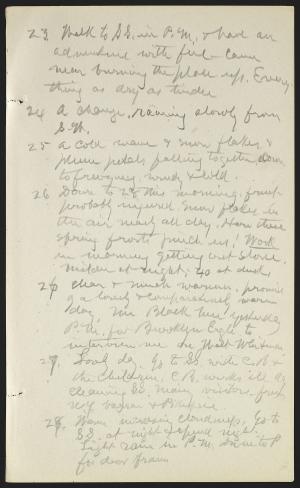 23 Walk to SS. in P.M. & have an
adventure with fire - came
near burning the place up. Every
thing as dry as tinder
24 A change, raining slowly from
S.W.
25 A cold wave & snow flakes &
plum petals falling together, down
to freezing, windy & cold.
26 Down to 28 this morning, fruit
probably injured. Snow flakes in
the air nearly all day. How these
spring frosts pinch us! Work
in morning getting out stone.
Milder at night; 40 at dusk
26 Clear & much warmer, promise
of a lovely & comparatively warm
day. Mr Black here yesterday
P.M. for Brooklyn Eagle to
interview me on Walt Whitman
27. Lovely day. Go to SS. with C.B. &
the children. C.B. works all day
cleaning SS. Many visitors from
Vassar &
28. Warm increasing cloudiness, Go to
SS. at night & spend night.
Light rain in P.M.
for door frame